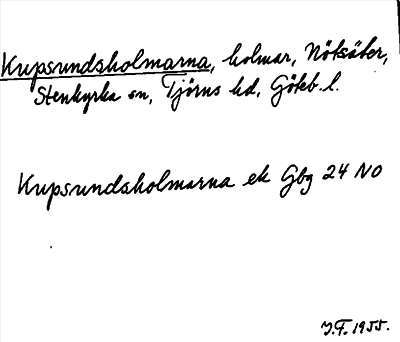 Kupsundsholmarna, holmar, Nötsäter,
Stenkyrka sn, Tjörns hd, Göteb. l.
Kupsundsholmarna ek Gbg 24 NO
J.F. 1955.